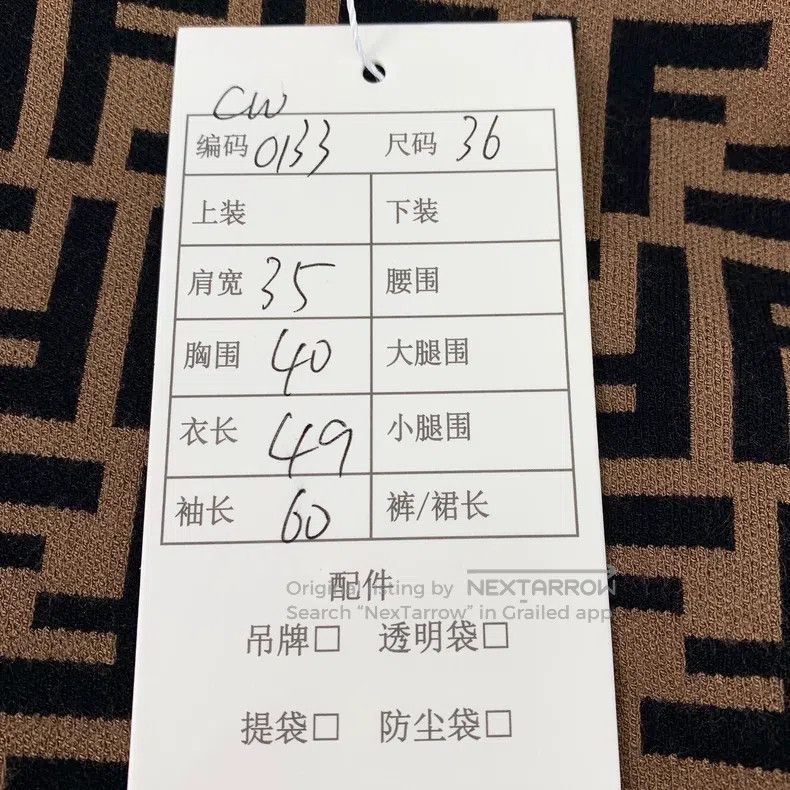 CW
编码 0133 尺码 36
上装 下装
肩宽 35 腰围
胸围 40 大腿围
衣长 49 小腿围
袖长 60 裤/裙长
配件
Original listing by NEXTARROW
Search “NexTarrow” in Grailed app
吊牌□ 透明袋□
提袋□ 防尘袋□